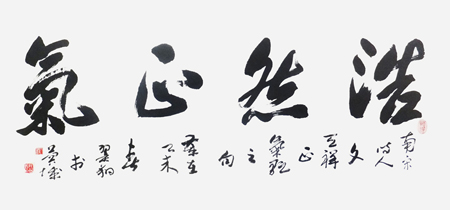 浩然正氣
南宋诗人文天祥正氣歌之句歲在乙未春